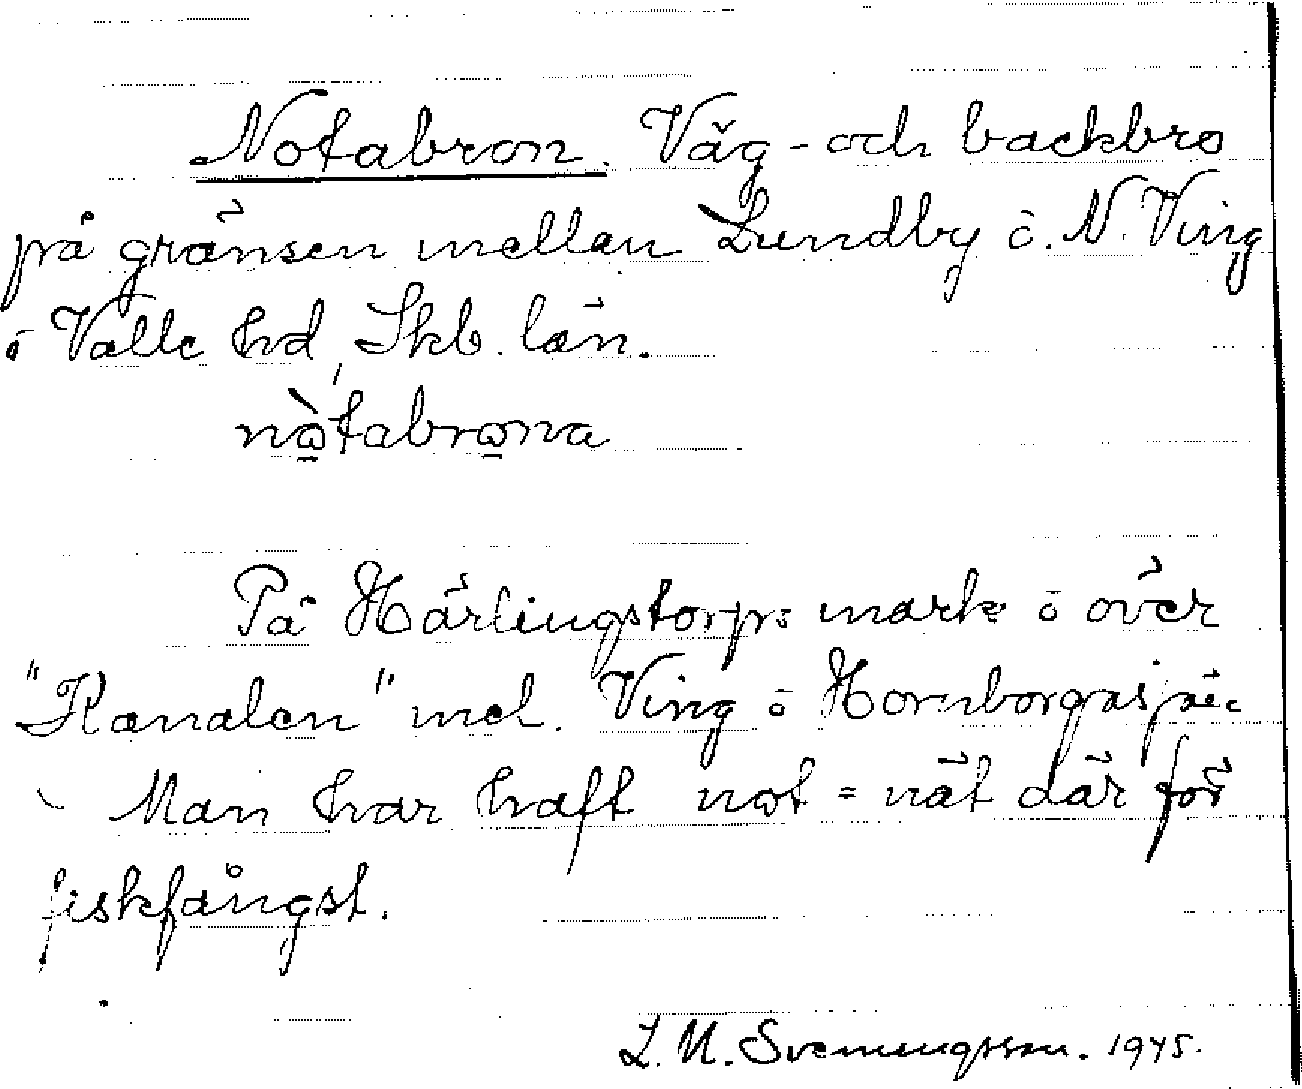 Notabron. Väg- och backbro
på gränsen mellan Lundby o. N. Ving
i Valle hd, Skb. län.
nò̱tabro̱na
På Härlingstorps mark o över
"Kanalen" mel. Ving o Hornborgasjön
- Man har haft not = nät där för
fiskfångst.
L. M. Svenungsson. 1945.